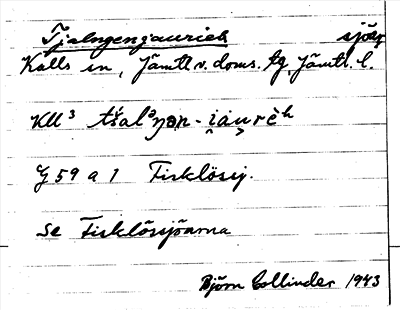 Tjalngenjaurieh sjöar
Kalls sn, Jämtl. v. doms. tg, Jämtl. l.
KU³ tśalᵊŋən-i̯au̯rèʰ
G 59 a 1 Fisklösj.
Se Fisklösjöarna
Björn Collinder 1943